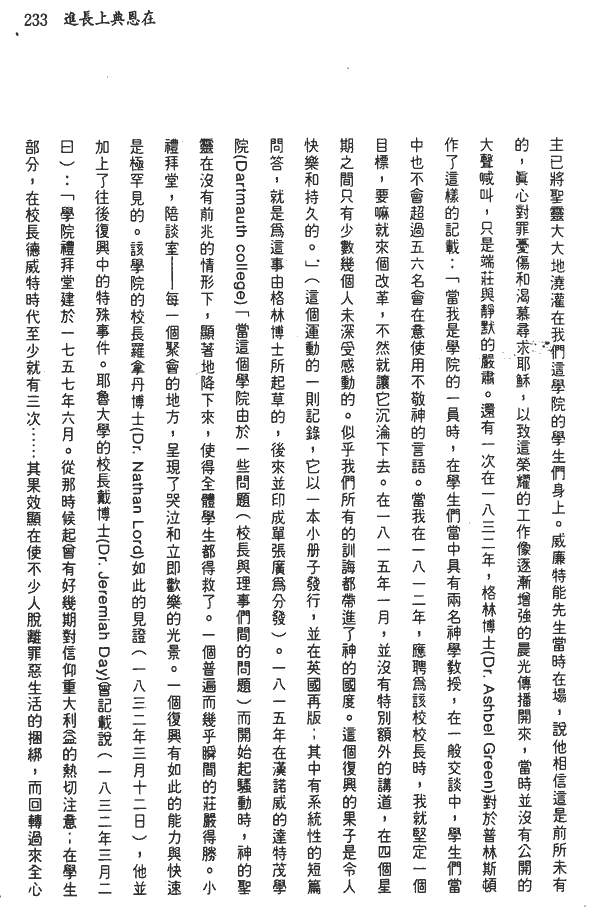 233 進長上典恩在
主已將聖靈大大地澆灌在我們這學院的學生們身上。威廉特能先生當時在場，說他相信這是前所未有
的，眞心對罪憂傷和渴慕尋求耶穌，以致這榮耀的工作像逐漸增強的晨光傳播開來，當時並沒有公開的
大聲喊叫，只是端莊與靜默的嚴肅。還有一次在一八三二年，格林博士(Dr. Ashbel Green)對於普林斯頓
作了這樣的記載：「當我是學院的一員時，在學生們當中具有兩名神學教授，在一般交談中，學生們當
中也不會超過五六名會在意使用不敬神的言語。當我在一八一二年，應聘爲該校校長時，我就堅定一個
目標，要嘛就來個改革，不然就讓它沉淪下去。在一八一五年一月，並沒有特別額外的講道，在四個星
期之間只有少數幾個人未深受感動的。似乎我們所有的訓誨都帶進了神的國度。這個復興的果子是令人
快樂和持久的。」（這個運動的一則記錄，它以一本小册子發行，並在英國再版；其中有系統性的短篇
問答，就是爲這事由格林博士所起草的，後來並印成單張廣爲分發）。一八一五年在漢諾威的達特茂學
院(Dartmauth college)「當這個學院由於一些問題（校長與理事們間的問題）而開始起騷動時，神的聖
靈在沒有前兆的情形下，顯著地降下來，使得全體學生都得救了。一個普遍而幾乎瞬間的莊嚴得勝。小
禮拜堂，陪談室——每一個聚會的地方，呈現了哭泣和立即歡樂的光景。一個復興有如此的能力與快速
是極罕見的。該學院的校長羅拿丹博士(Dr. Nathan Lord)如此的見證（一八三二年三月十二日），他並
加上了往後復興中的特殊事件。耶魯大學的校長戴博士(Dr. Jeremiah Day)曾記載說（一八三二年三月二
日）：「學院禮拜堂建於一七五七年六月。從那時候起曾有好幾期對信仰重大利益的熱切注意；在學生
部分，在校長德威特時代至少就有三次……其果效顯在使不少人脫離罪惡生活的捆綁，而回轉過來全心